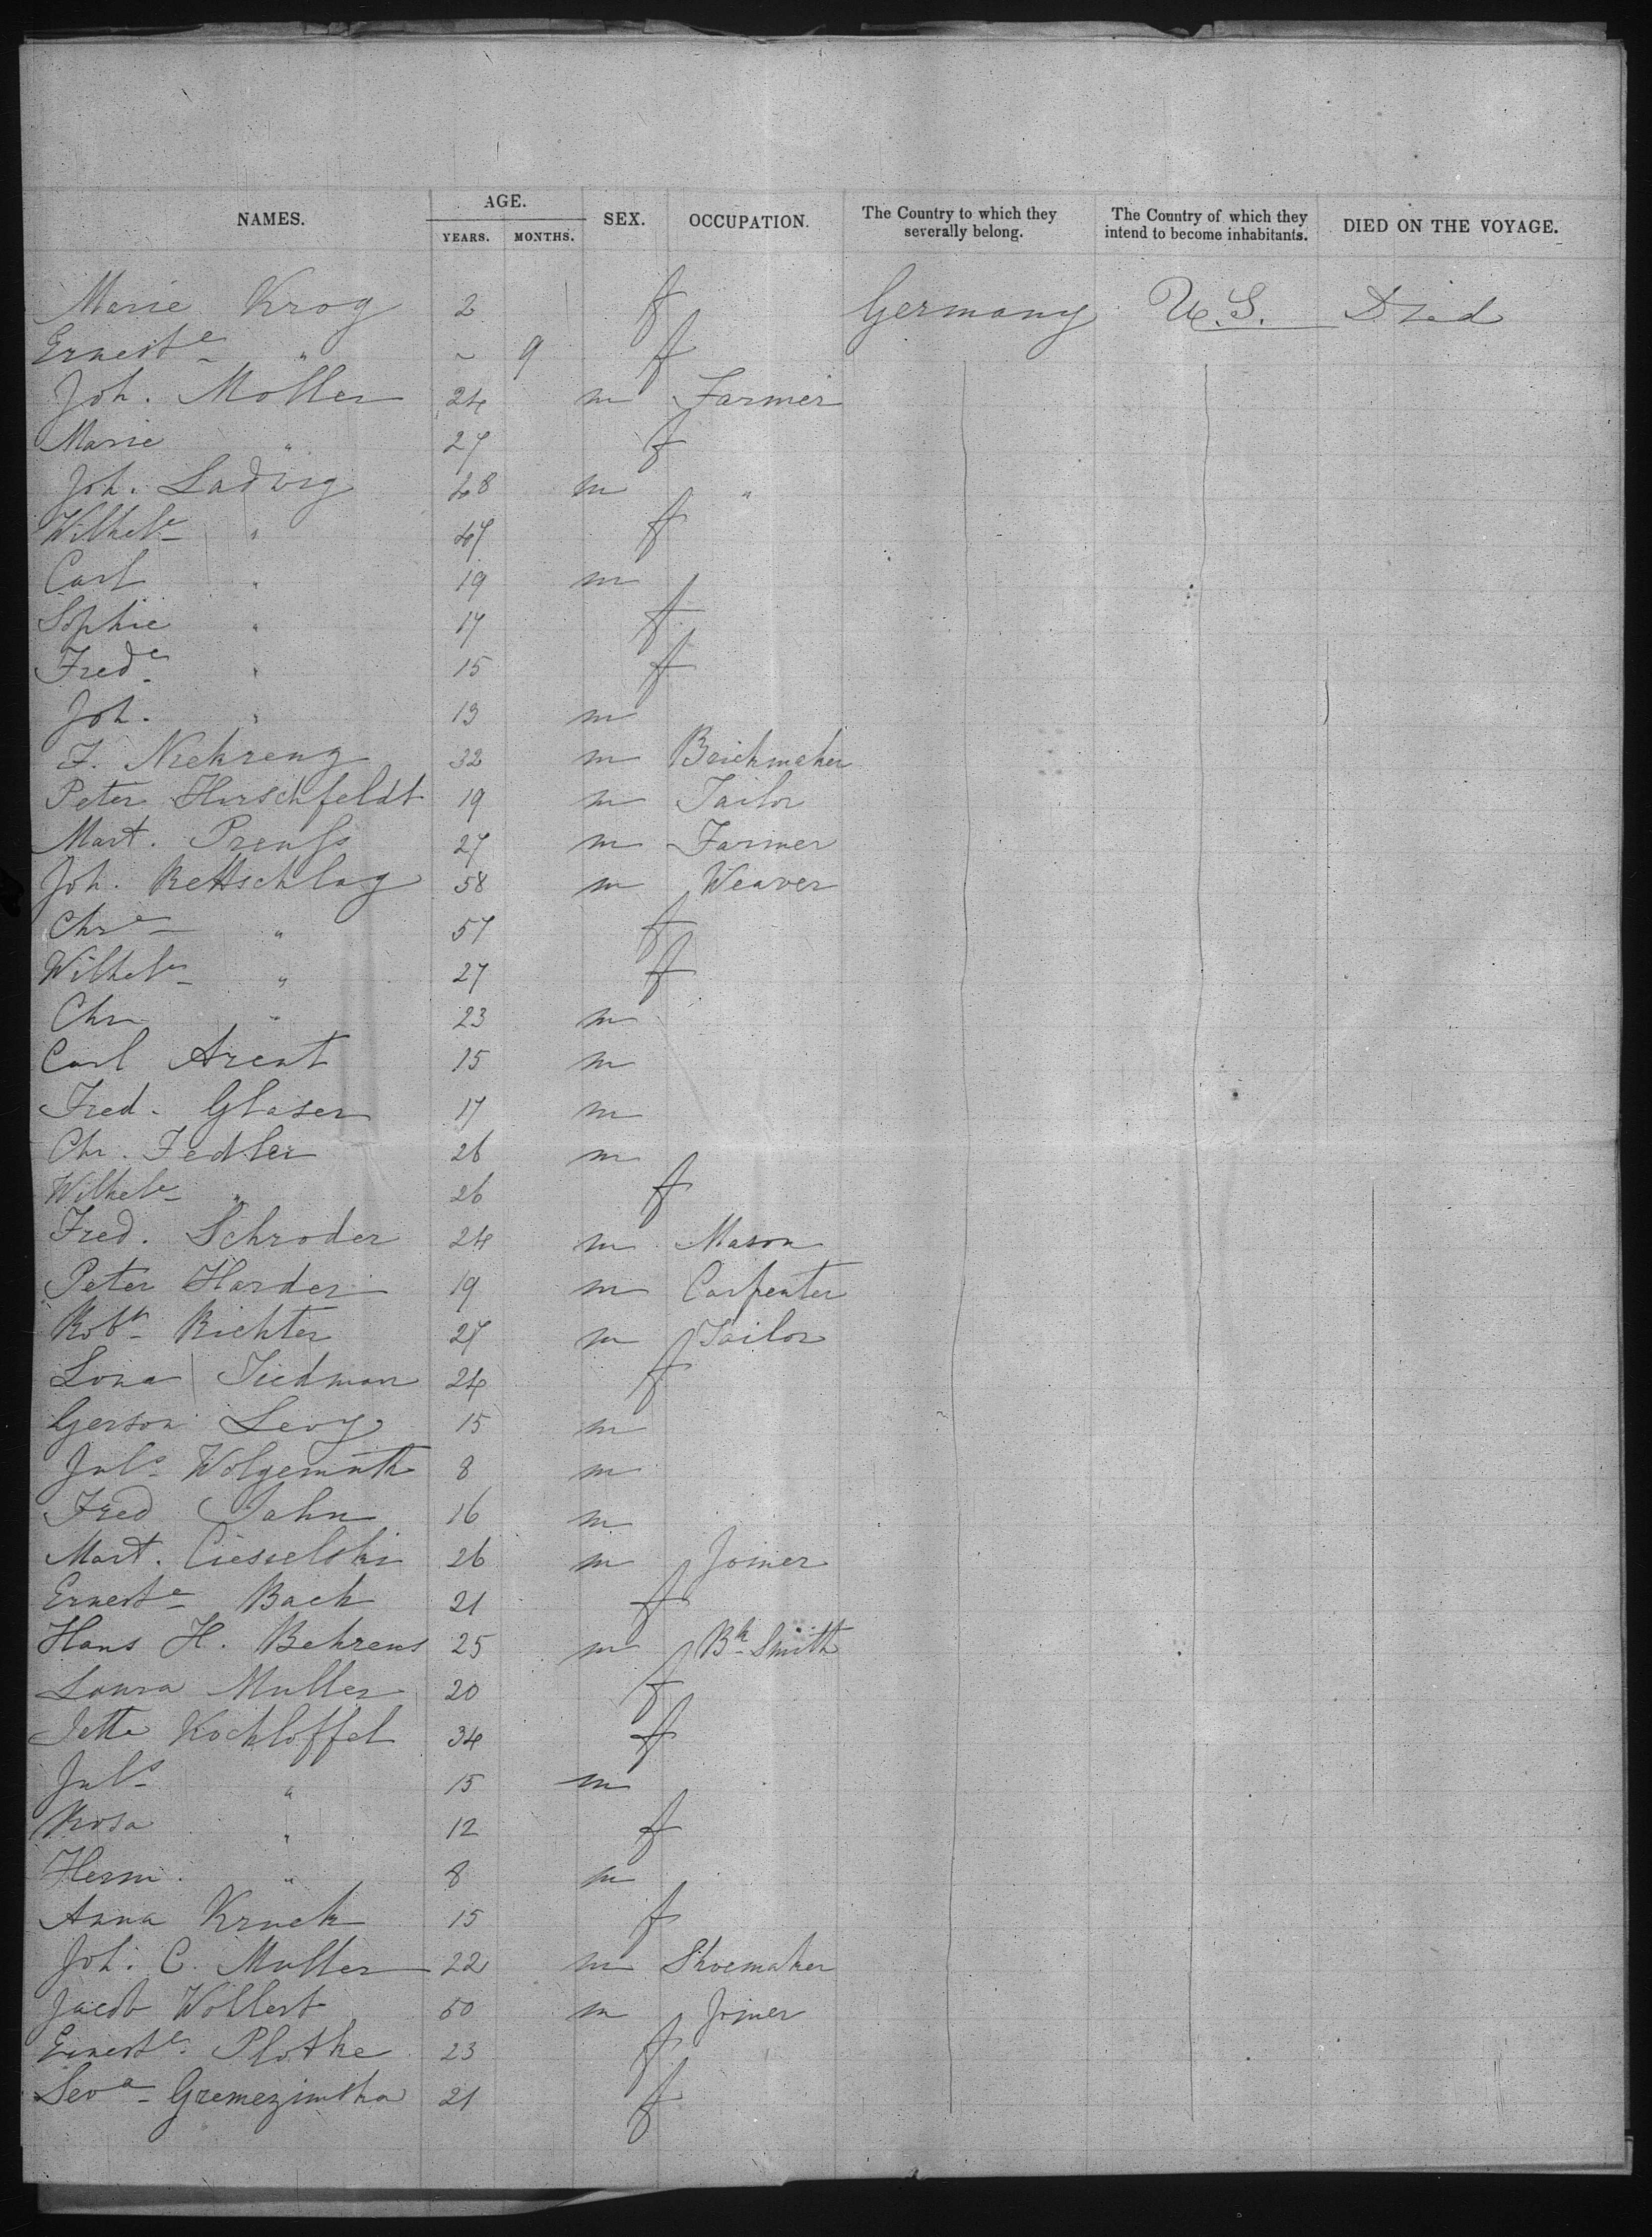 NAMES. AGE. SEX. OCCUPATION. The Country to which they severally belong. The Country of which they intend to become inhabitants. DIED ON THE VOYAGE.
YEARS. MONTHS.
Marie Krog 2 f Germany U.S. Died
Ernest^e " ~ 9 f
Joh. Moller 24 m Farmer
Marie " 27 f
Joh. Ladwig 48 m "
Wilhel^e " 47 f
Carl " 19 m
Sophie " 17 f
Fred^e " 15 f
Joh. " 13 m
F. Niehrenz 32 m Brickmaker
Peter Hirschfeldt 19 m Tailor
Mart. Preuss 27 m Farmer
Joh. Rettschlag 58 m Weaver
Chr^e " 57 f
Wilhel^e " 27 f
Chr " 23 m
Carl Arent 15 m
Fred. Glaser 17 m
Chr. Fedler 26 m
Wilhel^e " 26 f
Fred. Schroder 24 m Mason
Peter Harder 19 m Carpenter
Rob^t Richter 27 m Tailor
Lona Tiedman 24 f
Gerson Levy 15 m
Jul^s Wolgemuth 8 m
Fred Jahn 16 m
Mart. Cieselski 26 m Joiner
Ernest^e Back 21 f
Hans H. Behrens 25 m B^k Smith
Laura Muller 20 f
Jette Kochloffel 34 f
Jul^s " 15 m
Rosa " 12 f
Herm. " 8 m
Anna Kruck 15 f
Joh. C. Muller 22 m Shoemaker
Jacob Wollert 50 m Joiner
Ernest^e Plothe 23 f
Sev^a Gremezimska 21 f